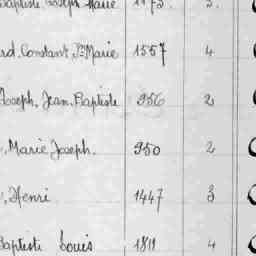 Baptiste Joseph Marie 1173. 3.
rd, Constant, Jn Marie 1557 4
Joseph, Jean, Baptiste 956 2
, Marie Joseph. 950 2
, Henri 1447 3
Baptiste Louis 1811 4